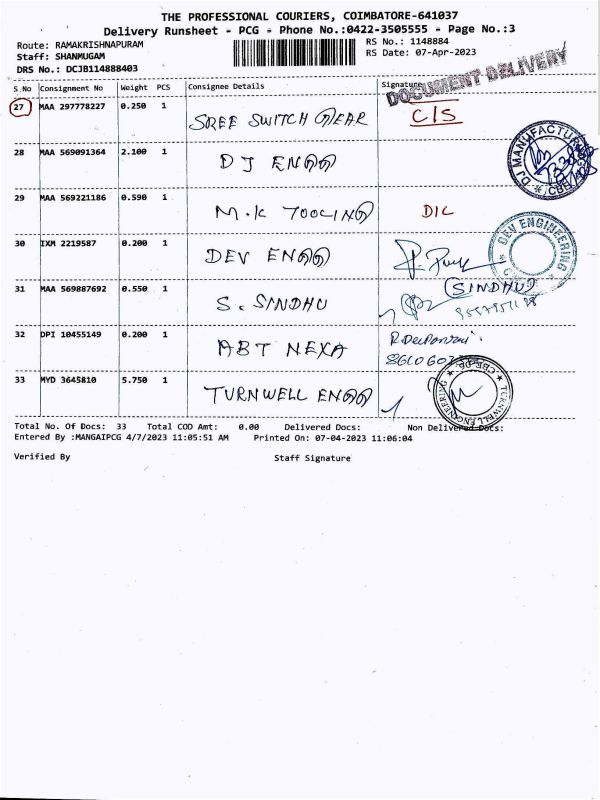 THE PROFESSIONAL COURIERS, COIMBATORE-641037
Delivery Runsheet - PCG - Phone No.:0422-3505555 - Page No.:3
Route: RAMAKRISHNAPURAM RS No.: 1148884
Staff: SHANMUGAM RS Date: 07-Apr-2023
DRS No.: DCJB114888403
DOCUMENT DELIVERY
S.No Consignment No Weight PCS Consignee Details Signature
27 MAA 297778227 0.250 1 SREE SWITCH GEAR C/S
28 MAA 569091364 2.100 1 DJ ENGG
DJ MANUFACTUR
CBE
29 MAA 569221186 0.590 1 M.K TOOLING D/L
30 IXM 2219587 0.200 1 DEV ENGG
DEV ENGINEERING
31 MAA 569887692 0.550 1 S. SINDHU (SINDHU)
32 DPI 10455149 0.200 1 ABT NEXA
33 MYD 3645810 5.750 1 TURNWELL ENGG
TURNWELL ENGINEERING
Total No. Of Docs: 33 Total COD Amt: 0.00 Delivered Docs: Non Delivered Docs:
Entered By :MANGAIPCG 4/7/2023 11:05:51 AM Printed On: 07-04-2023 11:06:04
Verified By Staff Signature